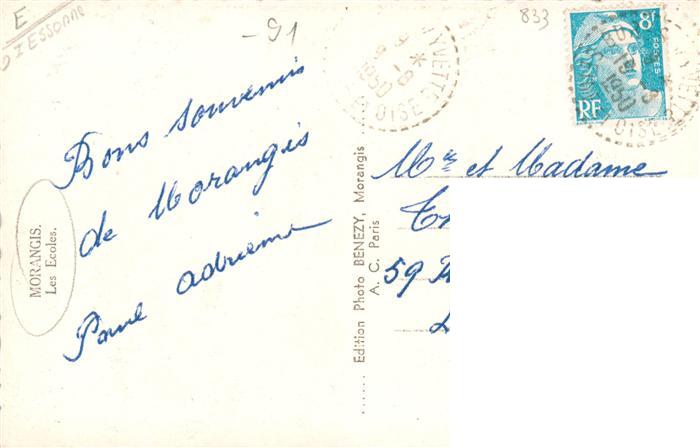 E
91 ESSONNE
- 91
833
8F
POSTES
RF
19
1950
OISE
YVETTE
1950
OISE
Bons souvenirs
de Morangis
Paul adrienne
MORANGIS.
Les Ecoles.
Edition Photo BENEZY, Morangis
A. C. Paris
Mr et Madame
59